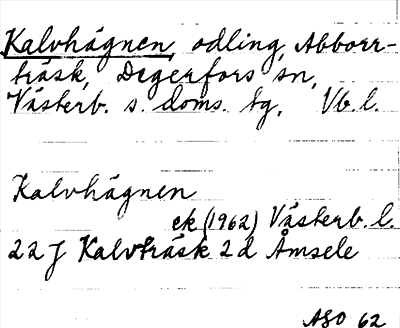 Kalvhägnen, odling, Abborr-
träsk, Degerfors sn,
Västerb. s. doms. tg, Vb. l.
Kalvhägnen
ek (1962) Västerb. l.
22 J Kalvträsk 2 d Åmsele
ASO 62